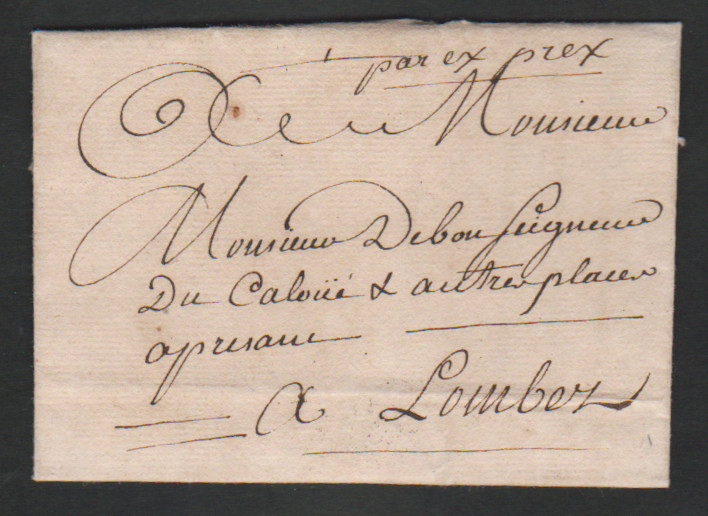 par ex prex
A Monsieur
Monsieur Debon Seigneur
Du Caloüé & autres places
apresant
a Lombez